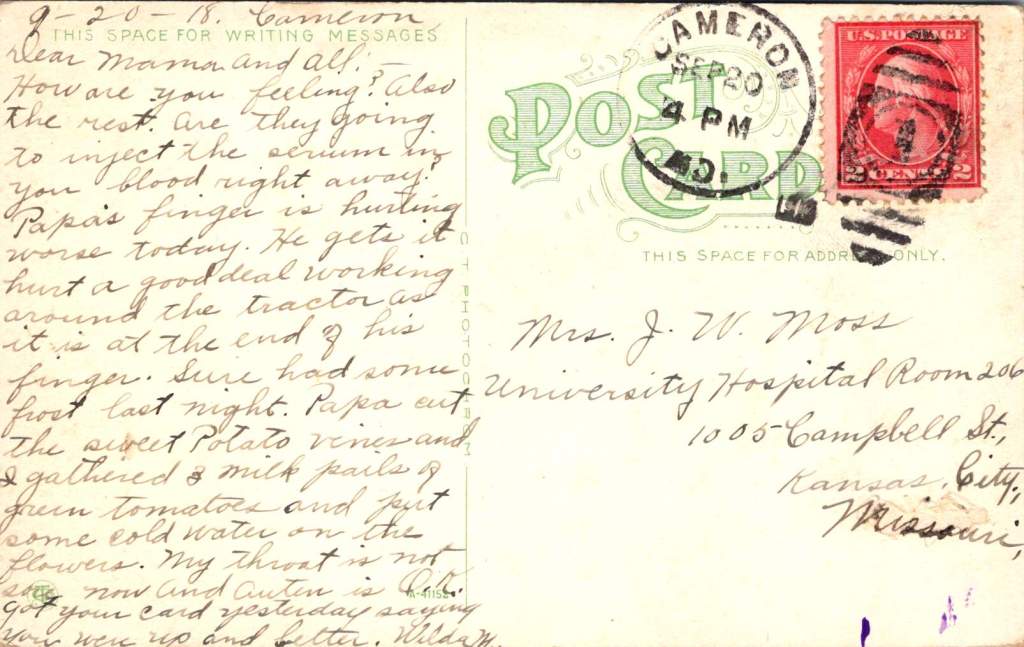 9-20-18. Cameron
THIS SPACE FOR WRITING MESSAGES
Dear Mama and all:-
How are you feeling? Also
the rest. Are they going
to inject the serum in
you blood right away?
Papa's finger is hurting
worse today. He gets it
hurt a good deal working
around the tractor as
it is at the end of his
finger. Sure had some
frost last night. Papa cut
the sweet Potato vines and
I gathered 3 milk pails of
green tomatoes and put
some cold water on the
flowers. My throat is not
sore now and Auten is O.K.
Got your card yesterday saying
you were up and better. Wilda M.
C T PHOTOCHROM
A-41152
POST CARD
CAMERON
SEP 20
4 PM
MO.
U.S. POSTAGE
2 CENTS 2
THIS SPACE FOR ADDRESS ONLY.
Mrs. J. W. Moss
University Hospital Room 206
1005 Campbell St.,
Kansas, City,
Missouri,